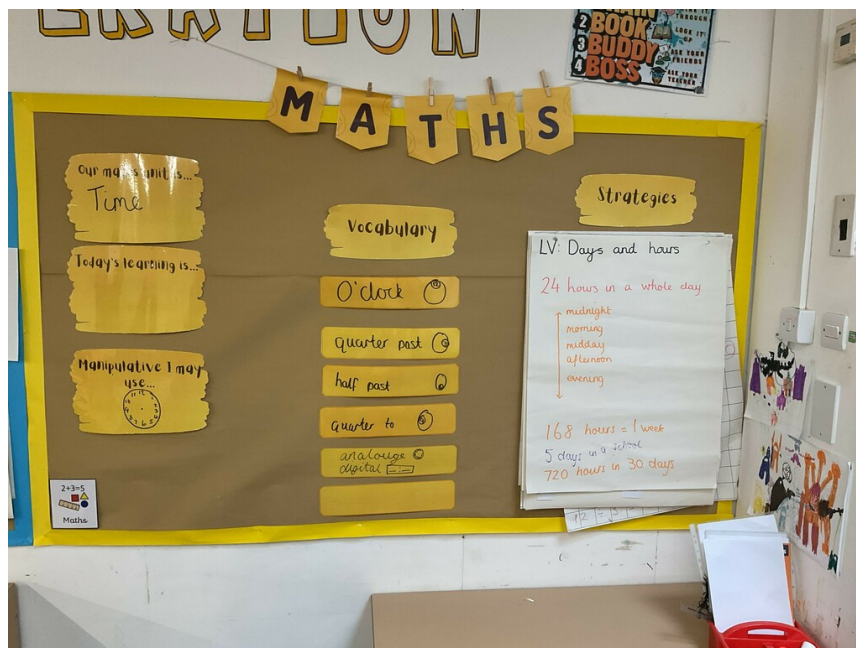 BRAIN
2 BOOK
3 BUDDY
4 BOSS
THROUGH
LOOK IT
UP
ASK YOUR
FRIENDS
ASK YOUR
TEACHER
MATHS
Our maths unit is...
Time
Today's learning is...
Manipulative I may
use...
2+3=5
Maths
Vocabulary
O'clock
quarter past
half past
quarter to
analouge
digital
Strategies
LV: Days and hours
24 hours in a whole day
midnight
morning
midday
afternoon
evening
168 hours = 1 week
5 days in a school
720 hours in 30 days